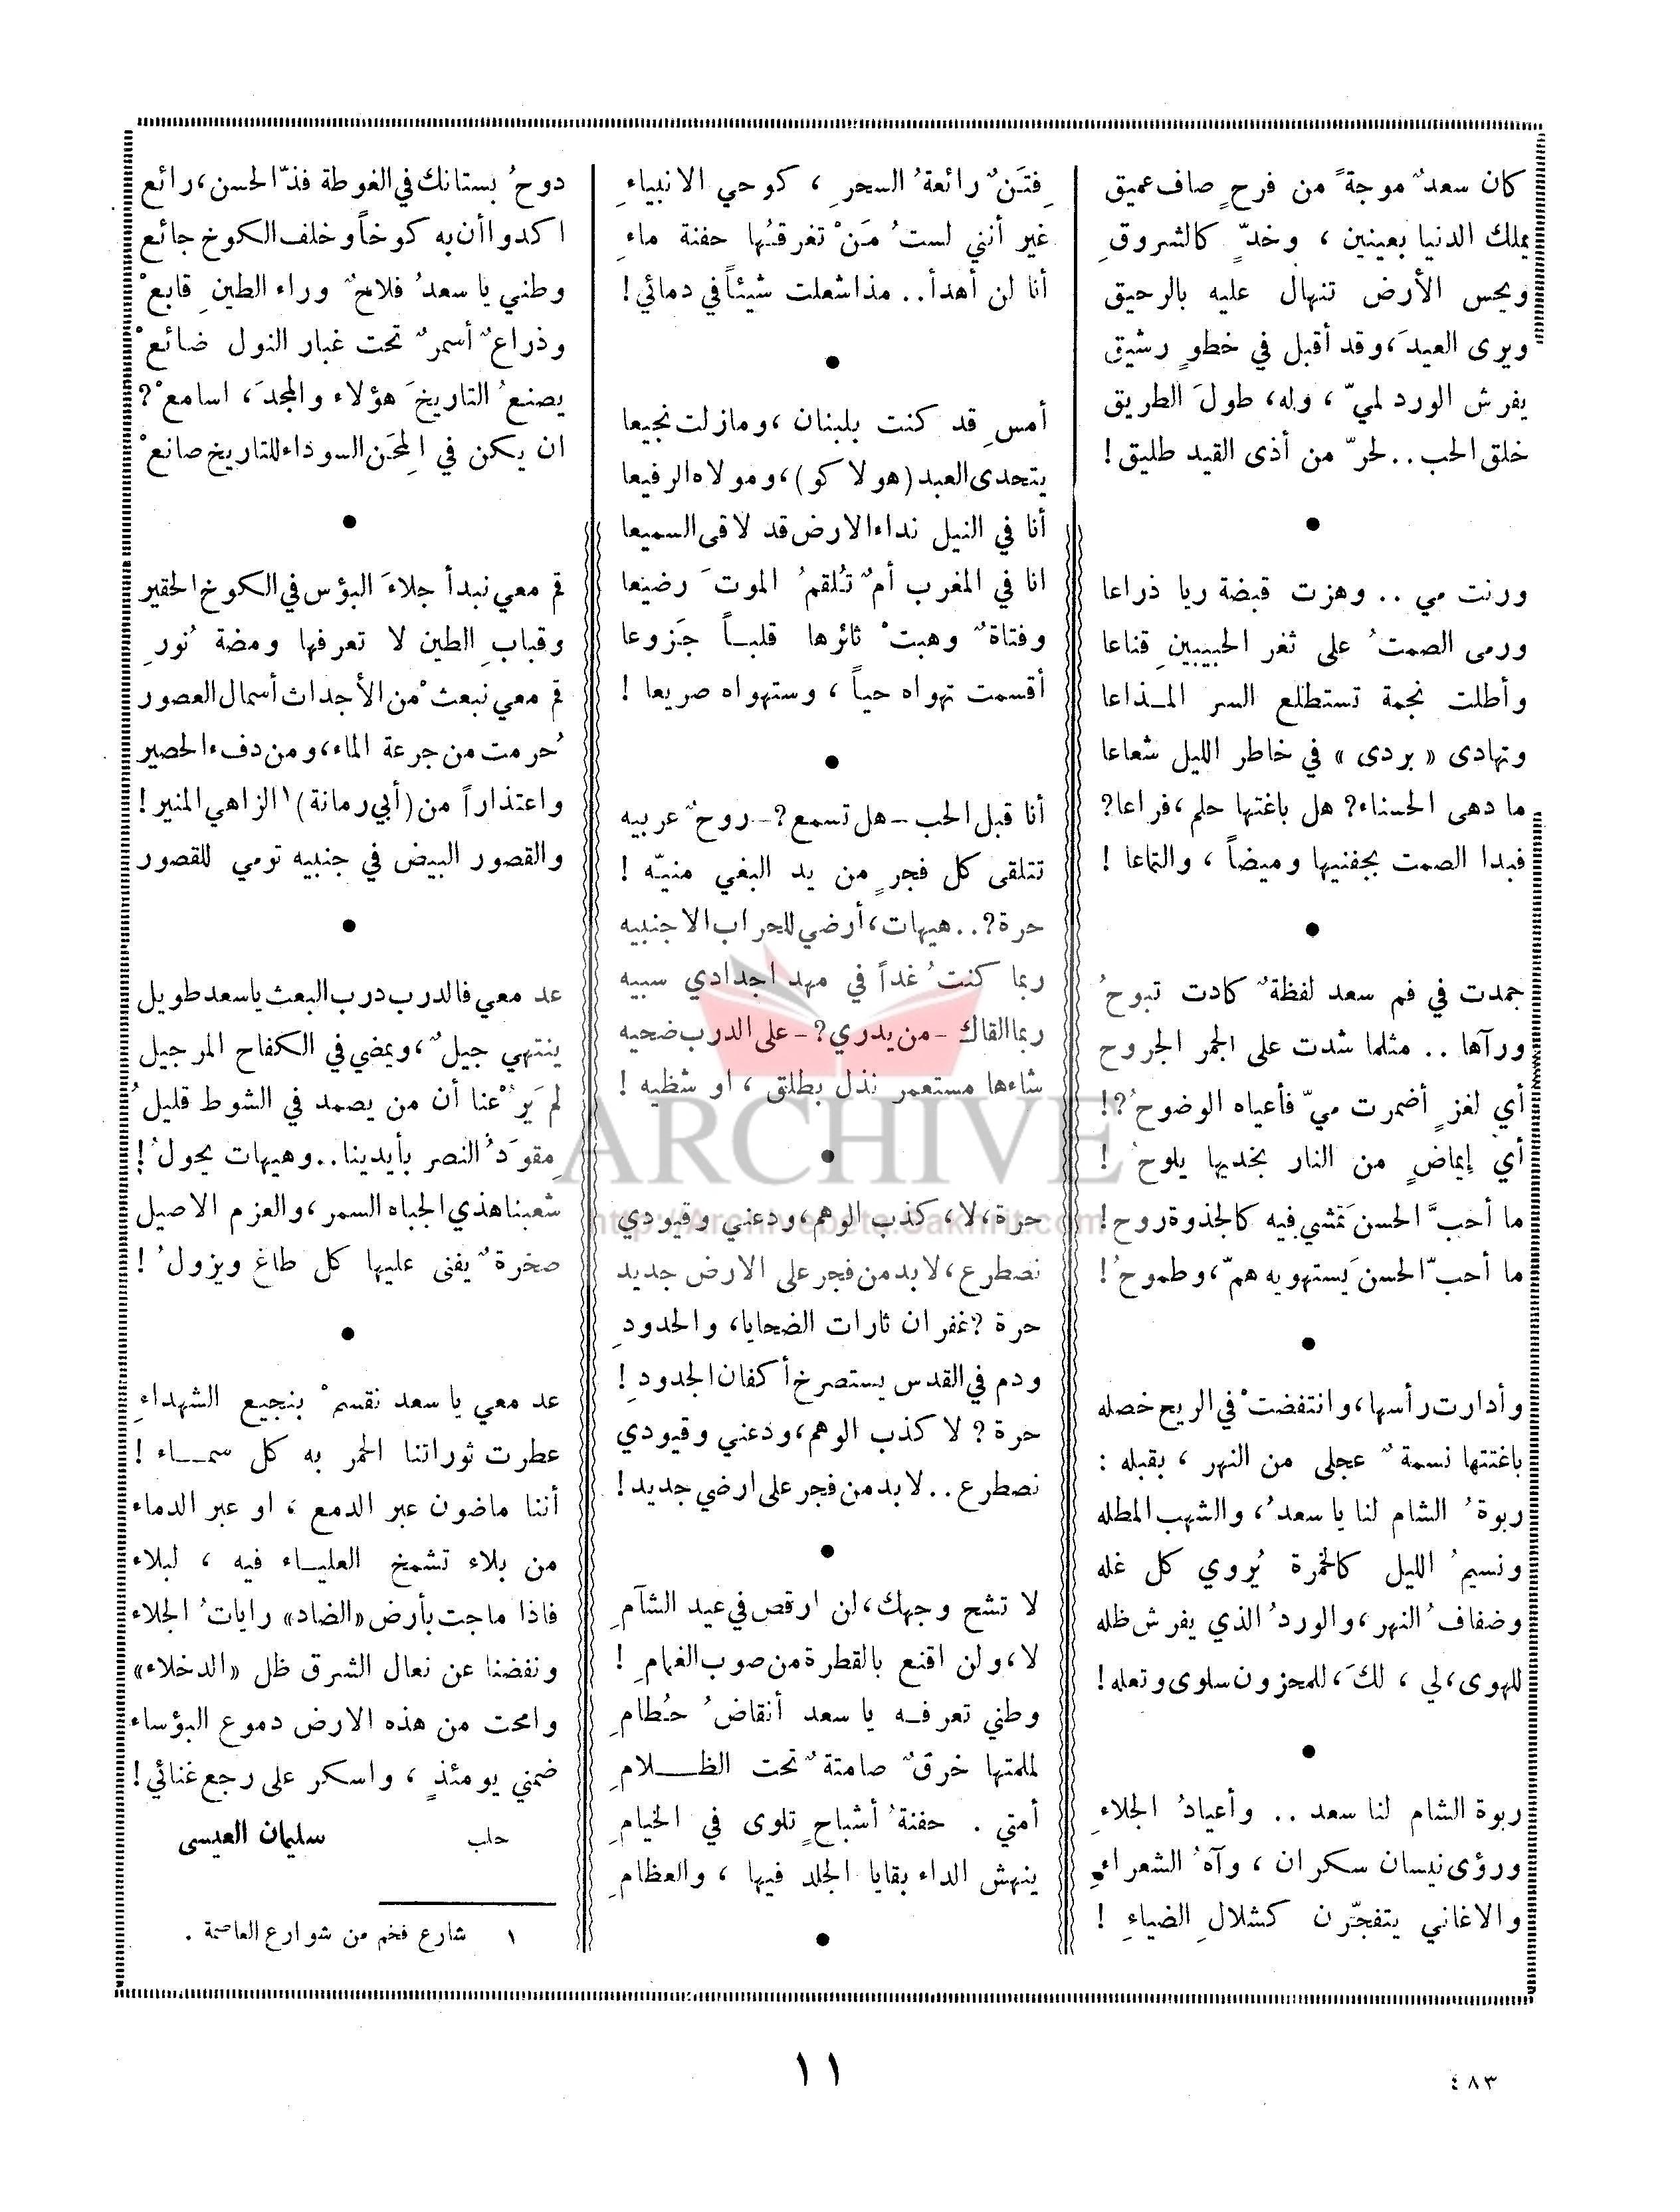 كان سعدٌ موجةً من فرحٍ صاف عميق
يملك الدنيا بعينين ، وخدٍّ كالشروقِ
ويحس الأرض تنهال عليه بالرحيق
ويرى العيدَ، وقد أقبل في خطوٍ رشيق
يفرش الورد لميّ ، وله، طولَ الطريق
خلق الحب . . لحرّ من أذى القيد طليق !
●
ورنت مي . . وهزت قبضة ريا ذراعا
ورمى الصمتُ على ثغر الحبيبينِ قناعا
وأطلت نجمة تستطلع السر المـذاعا
وتهادى « بردى » في خاطر الليل شعاعا
ما دهى الحسناء؟ هل باغتها حلم ،فراعا؟
فبدا الصمت بجفنيها وميضاً ، والتماعا !
●
جمدت في فم سعد لفظةٌ كادت تبوحُ
ورآها . . مثلما شدت على الجمر الجروح
أي لغزٍ أضمرت ميّ فأعياه الوضوحُ؟!
أيّ إيماضٍ من النار بخديها يلوحُ !
ما أحبَّ الحسنَ تمشي فيه كالجذوة روح !
ما أحبّ الحسنَ يستهويه همّ، وطموحُ !
●
وأدارت رأسها، وانتفضتْ في الريح خصله
باغتتها نسمةٌ عجلى من النهر ، بقبله :
ربوةُ الشام لنا يا سعدُ، والشهب المطله
ونسيمُ الليل كالخمرة يُروي كل غله
وضفافُ النهر، والوردُ الذي يفرش ظله
للهوى، لي ، لكَ، للمحزون سلوى وتعله !
●
ربوة الشام لنا سعد . . وأعيادُ الجلاءِ
ورؤى نيسان سكران ، وآهُ الشعراءِ
والاغاني يتفجّرن كشلالِ الضياءِ !
فِتَنٌ رائعةُ السحرِ ، كوحي الانبياءِ
غير أنني لستُ مَنْ تغرقُها حفنة ماءِ
أنا لن أهدأ . . مذ اشعلت شيئاً في دمائي !
●
أمسِ قد كنت بلبنان ، ومازلت نجيعا
يتحدى العبد (هولاكو)، ومولاه الرفيعا
أنا في النيل نداء الارض قد لاقى السميعا
انا في المغرب أمٌ تُلقمُ الموتَ رضيعا
وفتاةٌ وهبتْ ثائرها قلبـاً جَزوعا
أقسمت تهواه حياً ، وستهواه صريعا !
●
أنا قبل الحب – هل تسمع؟ – روحٌ عربيه
تتلقى كل فجرٍ من يد البغي منيّه !
حرة؟ . . هيهات، أرضي للحراب الاجنبيه
ربما كنتُ غداً في مهد اجدادي سبيه
ربما القاك - من يدري؟ - على الدرب ضحيه
شاءها مستعمر نذل بطلق ، او شظيه !
●
حرة، لا، كذب الوهم، ودعني وقيودي
نصطرع، لابد من فجر على الارض جديد
حرة ؟ غفران ثارات الضحايا، والحدودِ
ودم في القدس يستصرخ أكفان الجدودِ !
حرة ؟ لا كذب الوهم، ودعني وقيودي
نصطرع . . لابد من فجر على ارضي جديد !
●
لا تشح وجهك، لن ارقص في عيد الشآمِ
لا، ولن اقنع بالقطرة من صوب الغمامِ !
وطني تعرفـه يا سعد أنقاضُ حُطامِ
لملمتها خرقٌ صامتةٌ تحت الظـلامِ
أمتي . حفنةُ أشباحٍ تلوى في الخيامِ
ينهش الداء بقايا الجلد فيها ، والعظامِ
●
دوحُ بستانك في الغوطة فذّ الحسن، رائع
اكدوا أن به كوخاً وخلف الكوخ جائع
وطني يا سعدُ فلاحٌ وراء الطينِ قابعْ
وذراعٌ أسمرٌ تحت غبار النول ضائعْ
يصنعُ التاريخَ هؤلاء والمجدَ، اسامعْ؟
ان يكن في المِحَن السوداء للتاريخ صانعْ
●
قم معي نبدأ جلاءَ البؤس في الكوخ الحقير
وقبابِ الطين لا تعرفها ومضة نُورِ
قم معي نبعثْ من الأجداث أسمال العصور
حُرمت من جرعة الماء، ومن دفء الحصير
واعتذاراً من (أبي رمانة)١ الزاهي المنير !
والقصور البيض في جنبيه تومي للقصور
●
عد معي فالدرب درب البعث يا سعد طويل
ينتهي جيلٌ، ويمضي في الكفاح المر جيل
لم يَرُعْنا أن من يصمد في الشوط قليلُ
مِقوَدُ النصر بأيدينا . . وهيهات يحولُ !
شعبنا هذي الجباه السمر، والعزم الاصيل
صخرةٌ يفنى عليها كل طاغ ويزولُ !
●
عد معي يا سعد نقسمْ بنجيع الشهداءِ
عطرت ثوراتنا الحمر به كل سمـاء !
أننا ماضون عبر الدمع ، او عبر الدماء
من بلاء تشمخ العليـاء فيه ، لبلاء
فاذا ماجت بأرض «الضاد» راياتُ الجلاء
ونفضنا عن نعال الشرق ظل «الدخلاء»
وامحت من هذه الارض دموع البؤساء
ضمني يومئذٍ ، واسكر على رجع غنائي !
حلب سليمان العيسى
١ شارع فخم من شوارع العاصمة .
ARCHIVE
http://Archivebeta.Sakhrit.com
١١
٤٨٣